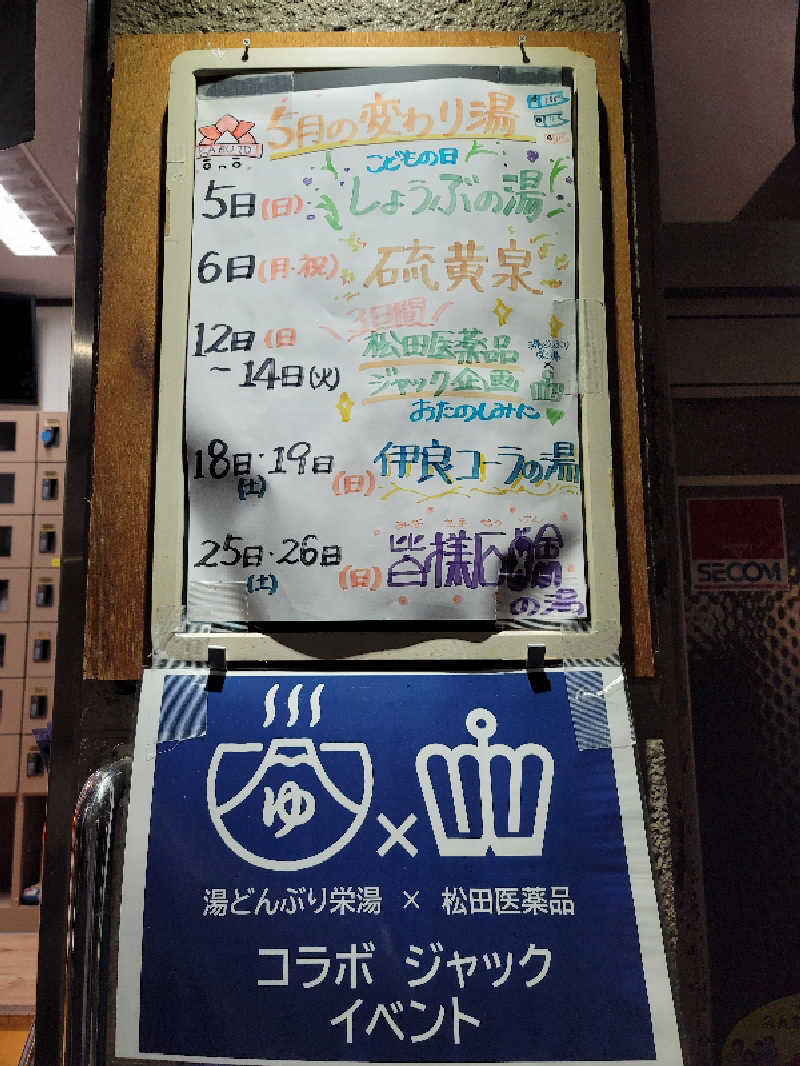 5月の変わり湯
こどもの日
5日(日) しょうぶの湯
6日(月・祝) 硫黄泉
3日間!
12日(日
～14日(火)
松田医薬品
ジャック企画
おたのしみに
18日・19日
(土) (日)
伊良コーラの湯
25日・26日
(土) (日)
皆様
の湯
SECOM
ゆ
×
湯どんぶり栄湯 × 松田医薬品
コラボ ジャック
イベント